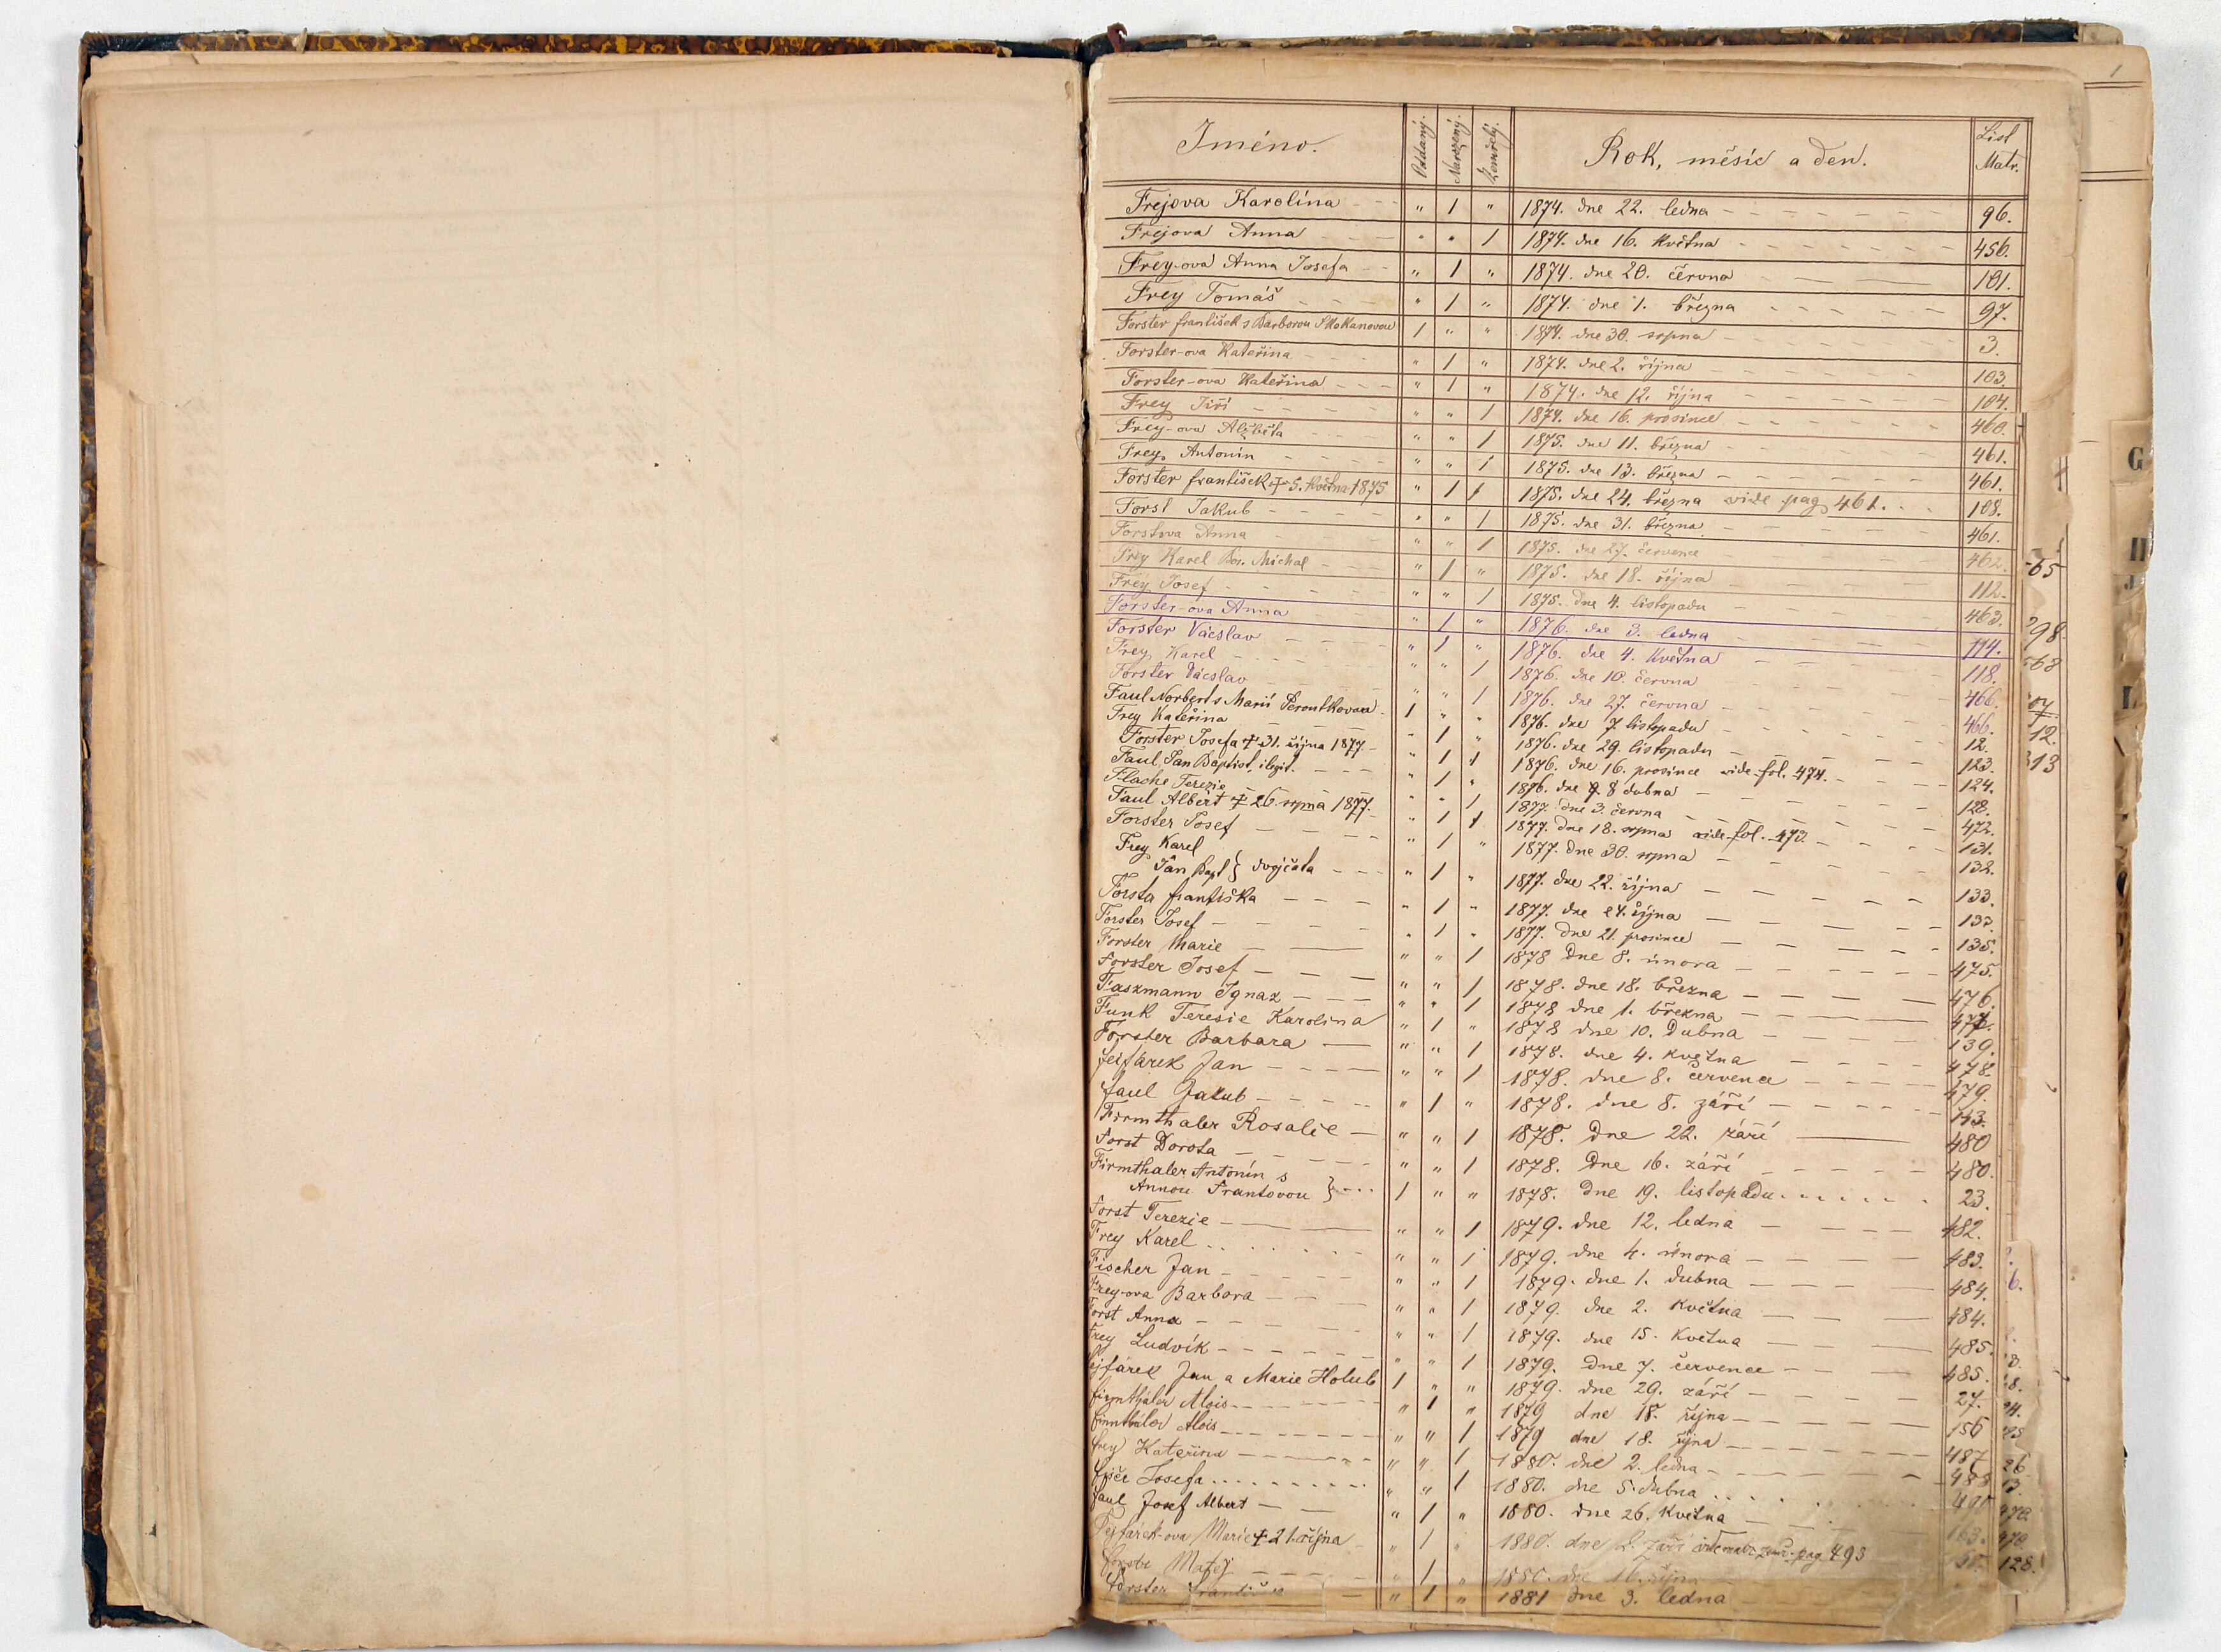 Jméno. Oddaný. Narozený. Zemřelý. Rok, měsíc a den. List Matr.
Frejova Karolina - - - " 1 " 1874. dne 22. ledna - - - 96.
Frejova Anna - - - " " 1 1874. dne 16. května - - - 456.
Frey-ova Anna Josefa - - " 1 " 1874. dne 20. června - - - 101.
Frey Tomáš - - - " 1 " 1874. dne 1. března - - - 97.
Forster František s Barborou 1 " " 1874. dne 30. srpna - - - 3.
Forster-ova Kateřina - - - " 1 " 1874. dne 2. října - - - 103.
Forster-ova Kateřina - - - " 1 " 1874. dne 12. října - - - 104.
Frey Jiří - - - " " 1 1874. dne 16. prosince - - - 460.
Frey-ova Alžběta - - - " " 1 1875. dne 11. března - - - 461.
Frey Antonín - - - " " 1 1875. dne 13. března - - - 461.
Forster František + 5. května 1875 " 1 1 1875. dne 24. března vide pag 461. . . 108.
Forst Jakub - - - " " 1 1875. dne 31. března - - - 461.
Forstova Anna - - - " " 1 1875. dne 27. července - - - 462.
Frey Karel Bor. Michal - - - " 1 " 1875. dne 18. října - - - 112.
Frey Josef - - - " " 1 1875. dne 4. listopadu - - - 463.
Forster-ova Anna - - - " 1 " 1876. dne 3. ledna - - - 114.
Forster Václav - - - " 1 " 1876. dne 4. května - - - 118.
Frey Karel - - - " " 1 1876. dne 10. června - - - 466.
Forster Václav - - - " " 1 1876. dne 27. června - - - 466.
Faul Norbert s Marií Peroutkovou 1 " " 1876. dne 7. listopadu - - - 12.
Frey Kateřina - - - " 1 " 1876. dne 29. listopadu - - - 123.
Forster Josefa + 31. října 1877 - " 1 1 1876. dne 16. prosince vide fol. 474. - 124.
Faul Jan Baptist, ilegit. - - - " 1 " 1876. dne 8 dubna - - - 128.
Flache Terezie - - - " " 1 1877. dne 3. června - - - 472.
Faul Albert + 26. srpna 1877. " 1 1 1877. dne 18. srpna vide fol. 473. - - - 131.
Forster Josef - - - " 1 " 1877. dne 30. srpna - - - 132.
Frey Karel
Jan Bapt } dvojčata - - - " 1 " 1877. dne 22. října - - - 133.
Forsta Františka - - - " 1 " 1877. dne 24. října - - - 133.
Forster Josef - - - " 1 " 1877. dne 21. prosince - - - 135.
Forster Marie - — " " 1 1878 dne 8. února - - - 475.
Forster Josef - - - " " 1 1878. dne 18. března - - - 476.
Faszmann Ignaz - - - " " 1 1878 dne 1. března - - - 477.
Funk Teresie Karolina " 1 " 1878 dne 10. Dubna - - - 139.
Forster Barbara — " " 1 1878. dne 4. května - - - 478.
Fejfárek Jan - - - " " 1 1878. dne 8. července - - - 479.
Faul Jakub - - - " 1 " 1878. dne 8. září - - - 143.
Firmthaler Rosalie — " " 1 1878. Dne 22. září — 480
Forst Dorota - - - " " 1 1878. Dne 16. září - - - 480.
Firmthaler Antonín s
Annou Frantovou } . . . 1 " " 1878. Dne 19. listopadu. . . . . . 23.
Forst Terezie — " " 1 1879. dne 12. ledna - - - 482.
Frey Karel . . . . " " 1 1879. dne 4. února - - - 483.
Fischer Jan - - - " " 1 1879. dne 1. dubna - - - 484.
Frey-ova Barbora - - - " " 1 1879. dne 2. května - - - 484.
Forst Anna - - - " " 1 1879. dne 15. května - - - 485.
Frey Ludvík - - - " " 1 1879. Dne 7. července - - - 485.
Fejfárek Jan a Marie Holub 1 " " 1879. dne 29. září - - - 27.
Firmthaler Alois - - - " 1 " 1879 dne 18. října - - - 156
Firmthaler Alois - - - " " 1 1879 dne 18. října - - - 487
Frey Kateřina - - - " " 1 1880. dne 2. ledna - - - 488
Josefa . . . . " " 1 1880. dne 5. dubna . . . .
Faul Josef Albert - - " 1 " 1880. dne 26. května - - -
Fejfárek-ova Marie + 21. října " 1 " 1880. dne 2. září pag 493
Matěj - - - " 1 " 1880. dne 16. října
Forster " 1 " 1881 dne 3. ledna
1
G
H
J
L
65
98
68
12.
313
128.